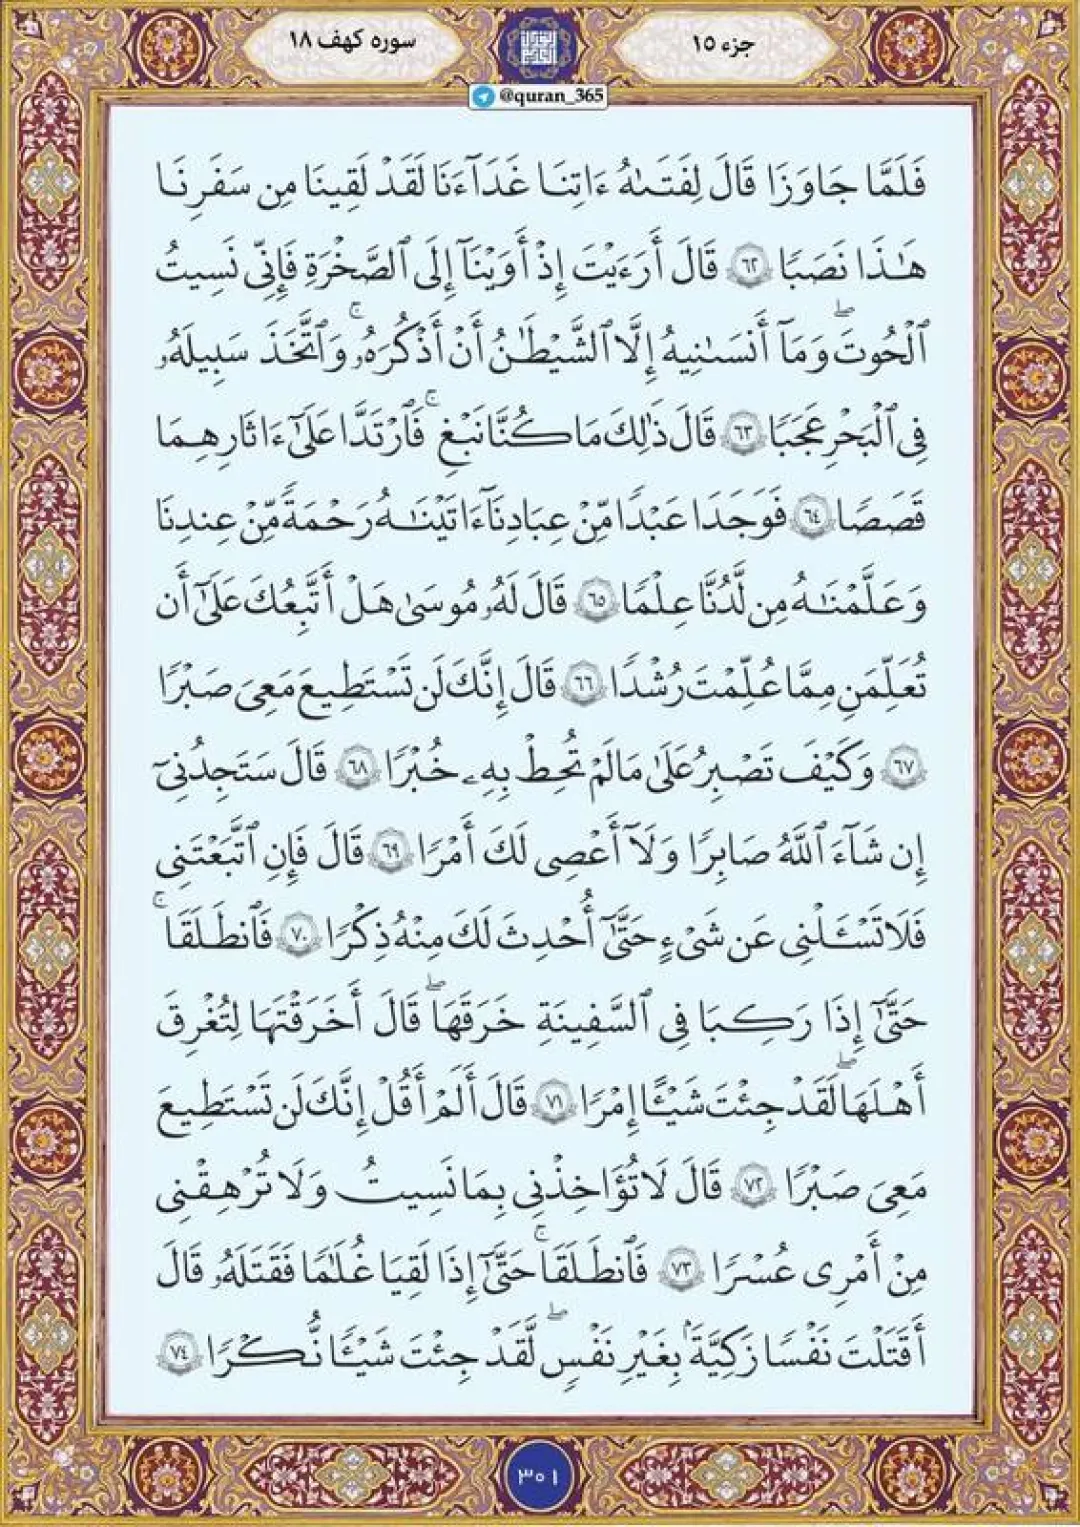 جزء ۱۵
سوره کهف ۱۸
@quran_365
فَلَمَّا جَاوَزَا قَالَ لِفَتَىٰهُ ءَاتِنَا غَدَآءَنَا لَقَدْ لَقِينَا مِن سَفَرِنَا
هَٰذَا نَصَبًا ٦٢ قَالَ أَرَءَيْتَ إِذْ أَوَيْنَآ إِلَى ٱلصَّخْرَةِ فَإِنِّى نَسِيتُ
ٱلْحُوتَ ۖ وَمَآ أَنسَىٰنِيهُ إِلَّا ٱلشَّيْطَٰنُ أَنْ أَذْكُرَهُۥ ۚ وَٱتَّخَذَ سَبِيلَهُۥ
فِى ٱلْبَحْرِ عَجَبًا ٦٣ قَالَ ذَٰلِكَ مَا كُنَّا نَبْغِ ۚ فَٱرْتَدَّا عَلَىٰٓ ءَاثَارِهِمَا
قَصَصًا ٦٤ فَوَجَدَا عَبْدًا مِّنْ عِبَادِنَآ ءَاتَيْنَٰهُ رَحْمَةً مِّنْ عِندِنَا
وَعَلَّمْنَٰهُ مِن لَّدُنَّا عِلْمًا ٦٥ قَالَ لَهُۥ مُوسَىٰ هَلْ أَتَّبِعُكَ عَلَىٰٓ أَن
تُعَلِّمَنِ مِمَّا عُلِّمْتَ رُشْدًا ٦٦ قَالَ إِنَّكَ لَن تَسْتَطِيعَ مَعِىَ صَبْرًا
٦٧ وَكَيْفَ تَصْبِرُ عَلَىٰ مَا لَمْ تُحِطْ بِهِۦ خُبْرًا ٦٨ قَالَ سَتَجِدُنِىٓ
إِن شَآءَ ٱللَّهُ صَابِرًا وَلَآ أَعْصِى لَكَ أَمْرًا ٦٩ قَالَ فَإِنِ ٱتَّبَعْتَنِى
فَلَا تَسْـَٔلْنِى عَن شَىْءٍ حَتَّىٰٓ أُحْدِثَ لَكَ مِنْهُ ذِكْرًا ٧٠ فَٱنطَلَقَا ۚ
حَتَّىٰٓ إِذَا رَكِبَا فِى ٱلسَّفِينَةِ خَرَقَهَا ۖ قَالَ أَخَرَقْتَهَا لِتُغْرِقَ
أَهْلَهَا ۖ لَقَدْ جِئْتَ شَيْـًٔا إِمْرًا ٧١ قَالَ أَلَمْ أَقُلْ إِنَّكَ لَن تَسْتَطِيعَ
مَعِىَ صَبْرًا ٧٢ قَالَ لَا تُؤَاخِذْنِى بِمَا نَسِيتُ وَلَا تُرْهِقْنِى
مِنْ أَمْرِى عُسْرًا ٧٣ فَٱنطَلَقَا ۚ حَتَّىٰٓ إِذَا لَقِيَا غُلَٰمًا فَقَتَلَهُۥ قَالَ
أَقَتَلْتَ نَفْسًا زَكِيَّةًۢ بِغَيْرِ نَفْسٍ ۖ لَّقَدْ جِئْتَ شَيْـًٔا نُّكْرًا ٧٤
۳۰۱